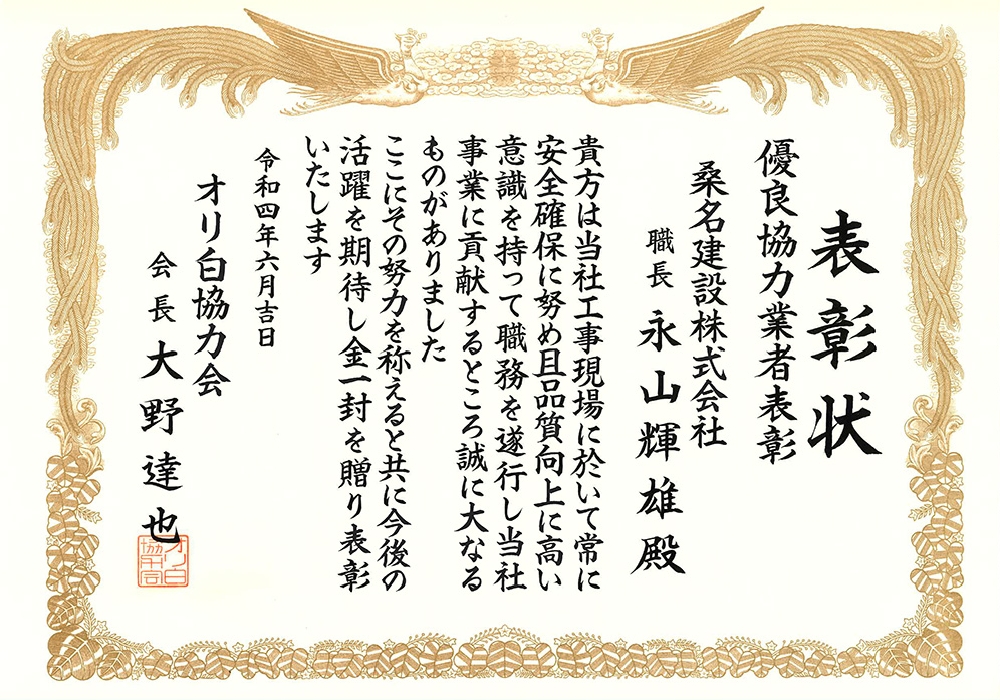 表彰状
優良協力業者表彰
桑名建設株式会社
職長 永山輝雄殿
貴方は当社工事現場に於いて常に
安全確保に努め且品質向上に高い
意識を持って職務を遂行し当社
事業に貢献するところ誠に大なる
ものがありました
ここにその努力を称えると共に今後の
活躍を期待し金一封を贈り表彰
いたします
令和四年六月吉日
オリ白協力会
会長 大野達也